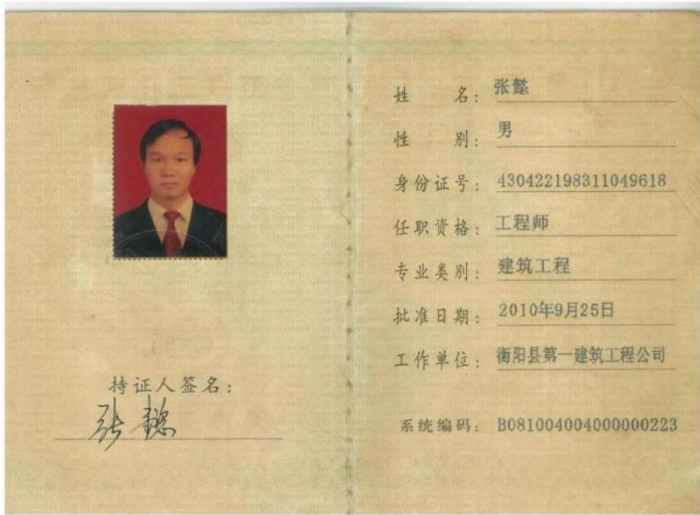 持证人签名：
张懿
姓 名：张懿
性 别：男
身份证号：430422198311049618
任职资格：工程师
专业类别：建筑工程
批准日期：2010年9月25日
工作单位：衡阳县第一建筑工程公司
系统编码：B08100400400000223